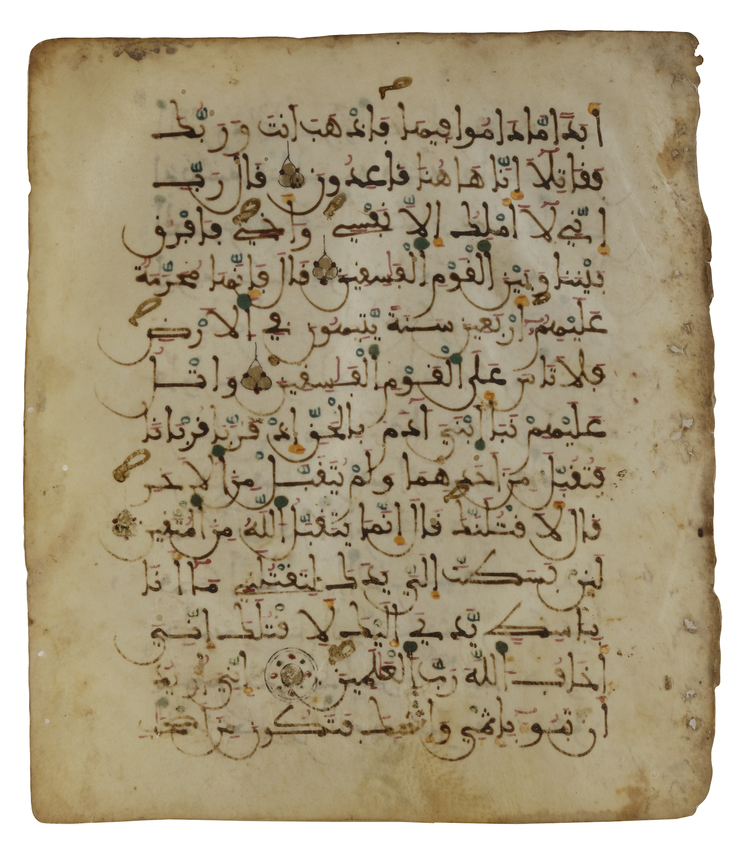 ابدا ما داموا فيها فاذهب انت وربك
فقاتلا انا هاهنا قاعدون قال رب
اني لا املك الا نفسي واخي فافرق
بيننا وبين القوم الفسقين قال فانها محرمة
عليهم اربعين سنة يتيهون في الارض
فلا تاس على القوم الفسقين واتل
عليهم نبا ابني ادم بالحق اذ قربا قربانا
فتقبل من احدهما ولم يتقبل من الاخر
قال لاقتلنك قال انما يتقبل الله من المتقين
لئن بسطت الي يدك لتقتلني ما انا
بباسط يدي اليك لاقتلك اني
اخاف الله رب العلمين اني اريد
ان تبوا باثمي واثمك فتكون من اصحب